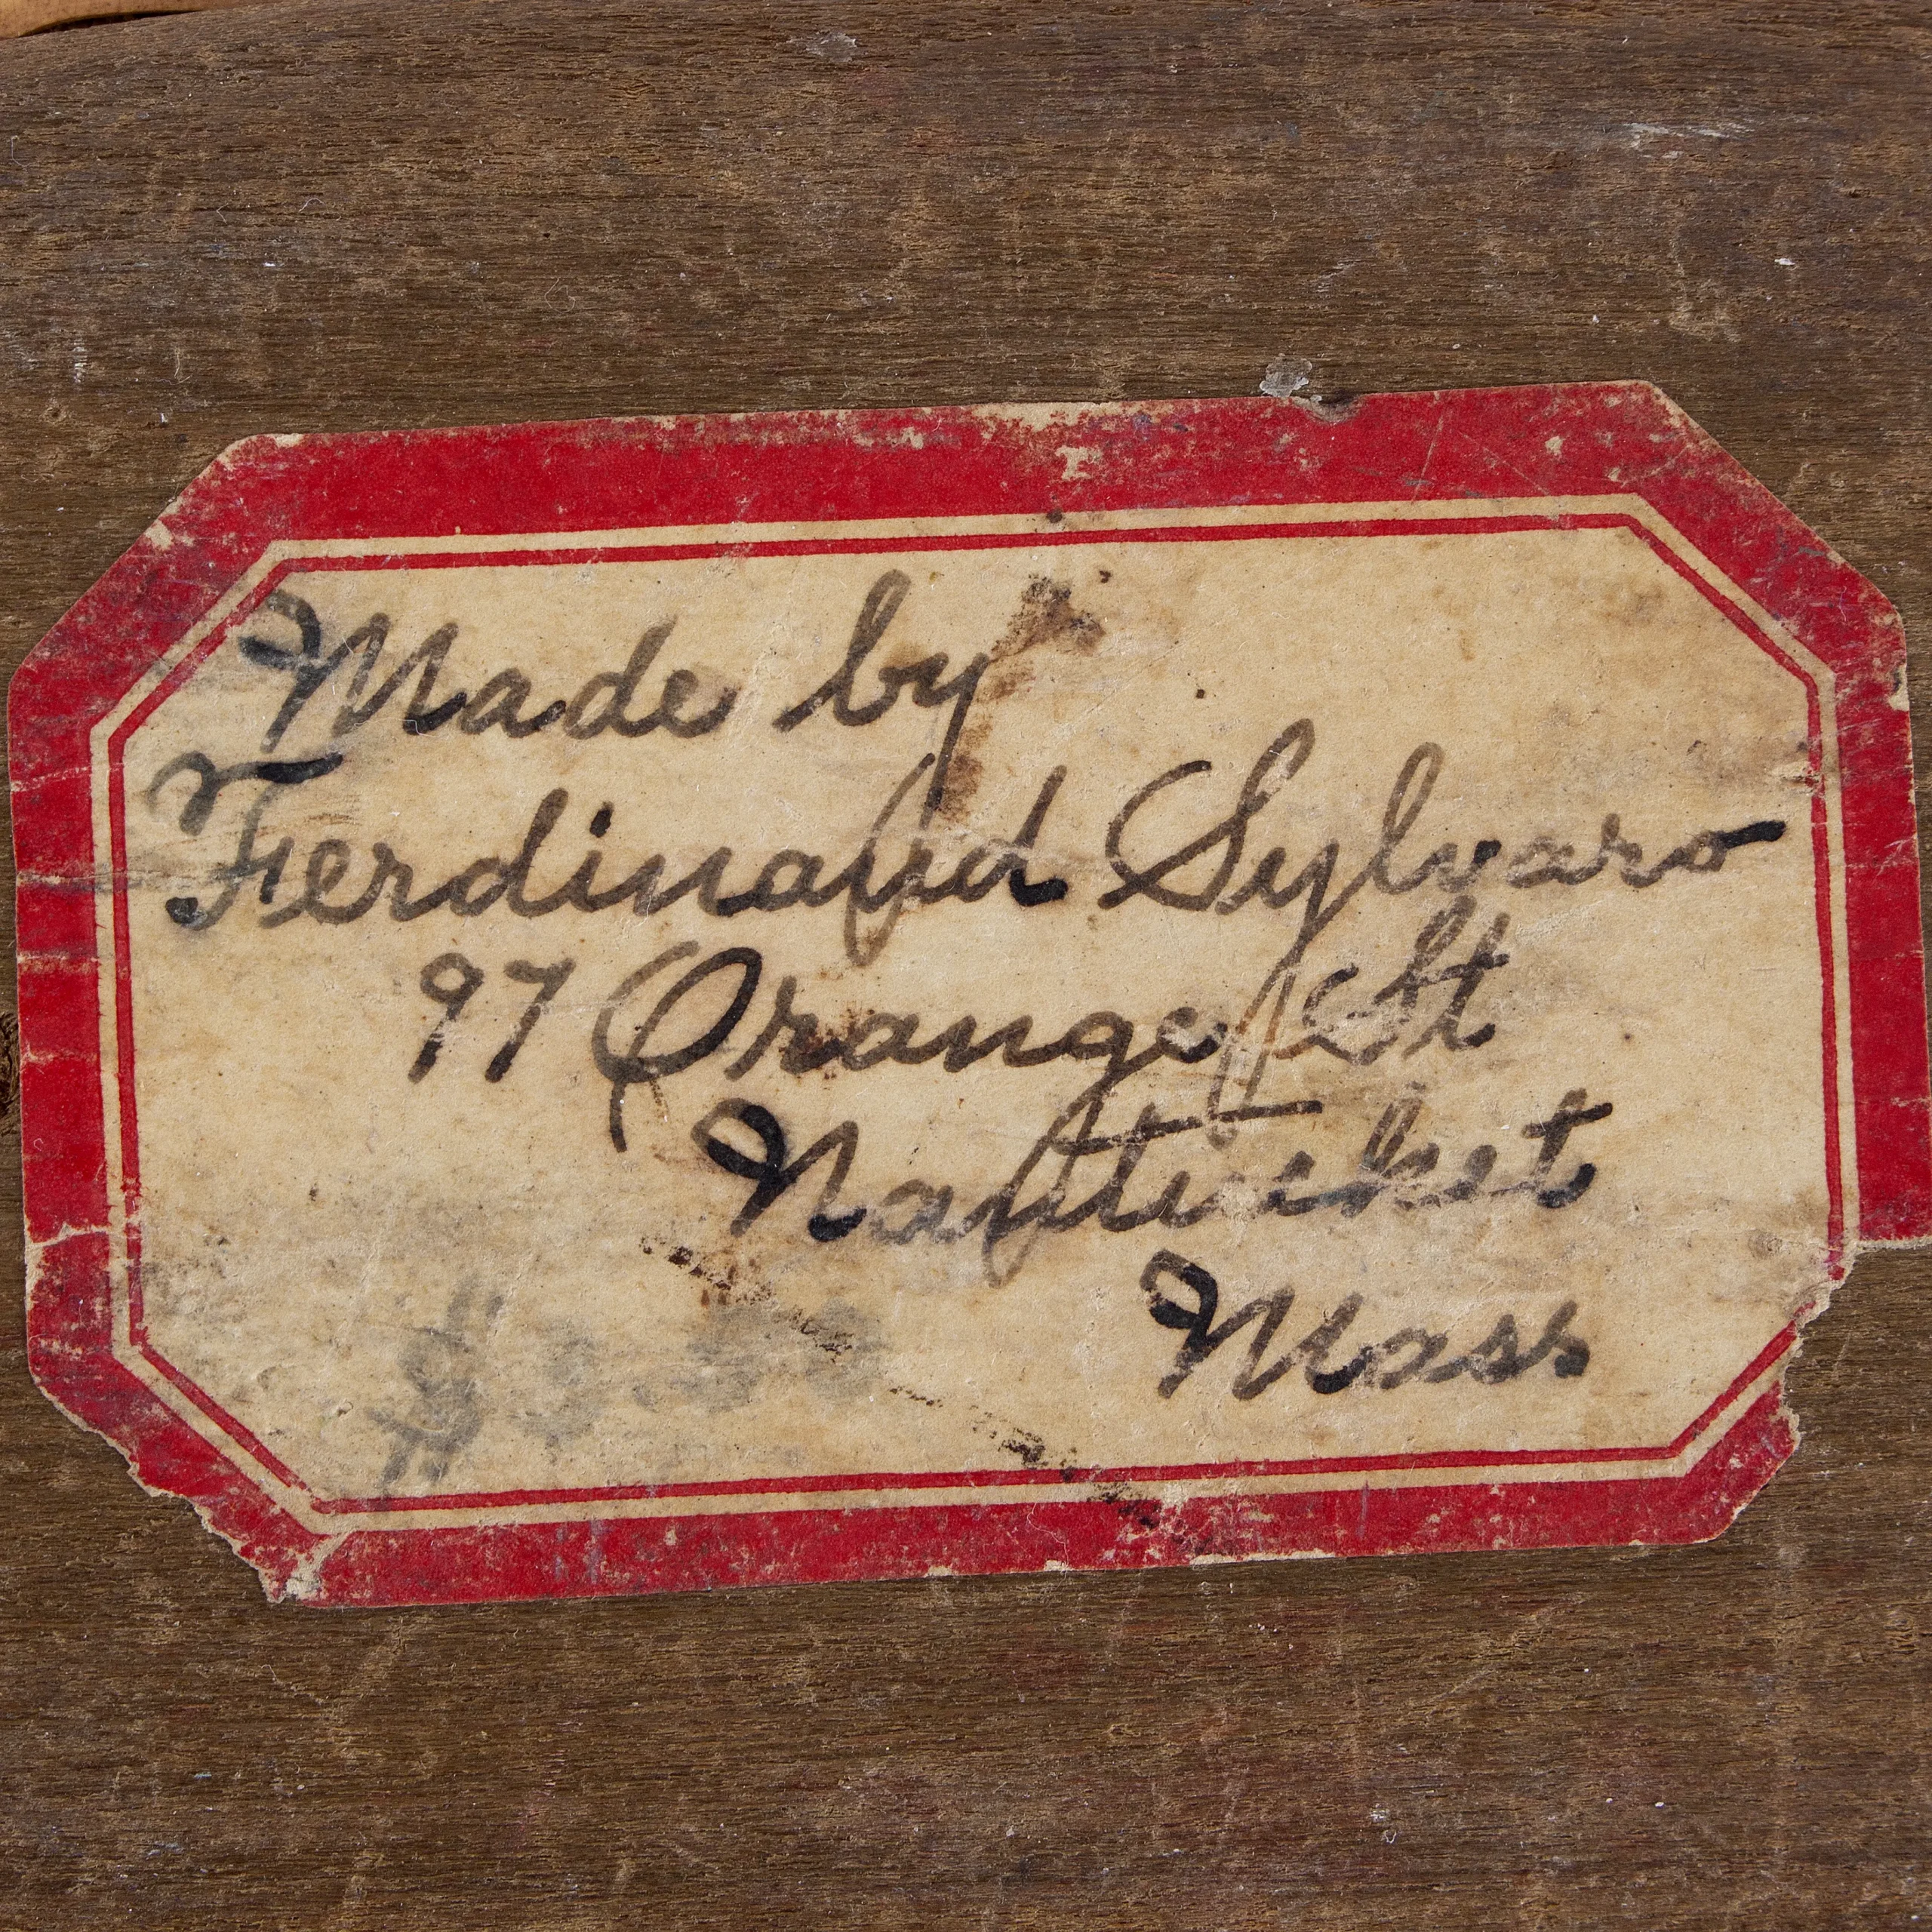 Made by
Ferdinand Sylvaro
97 Orange St
Nantucket
Mass